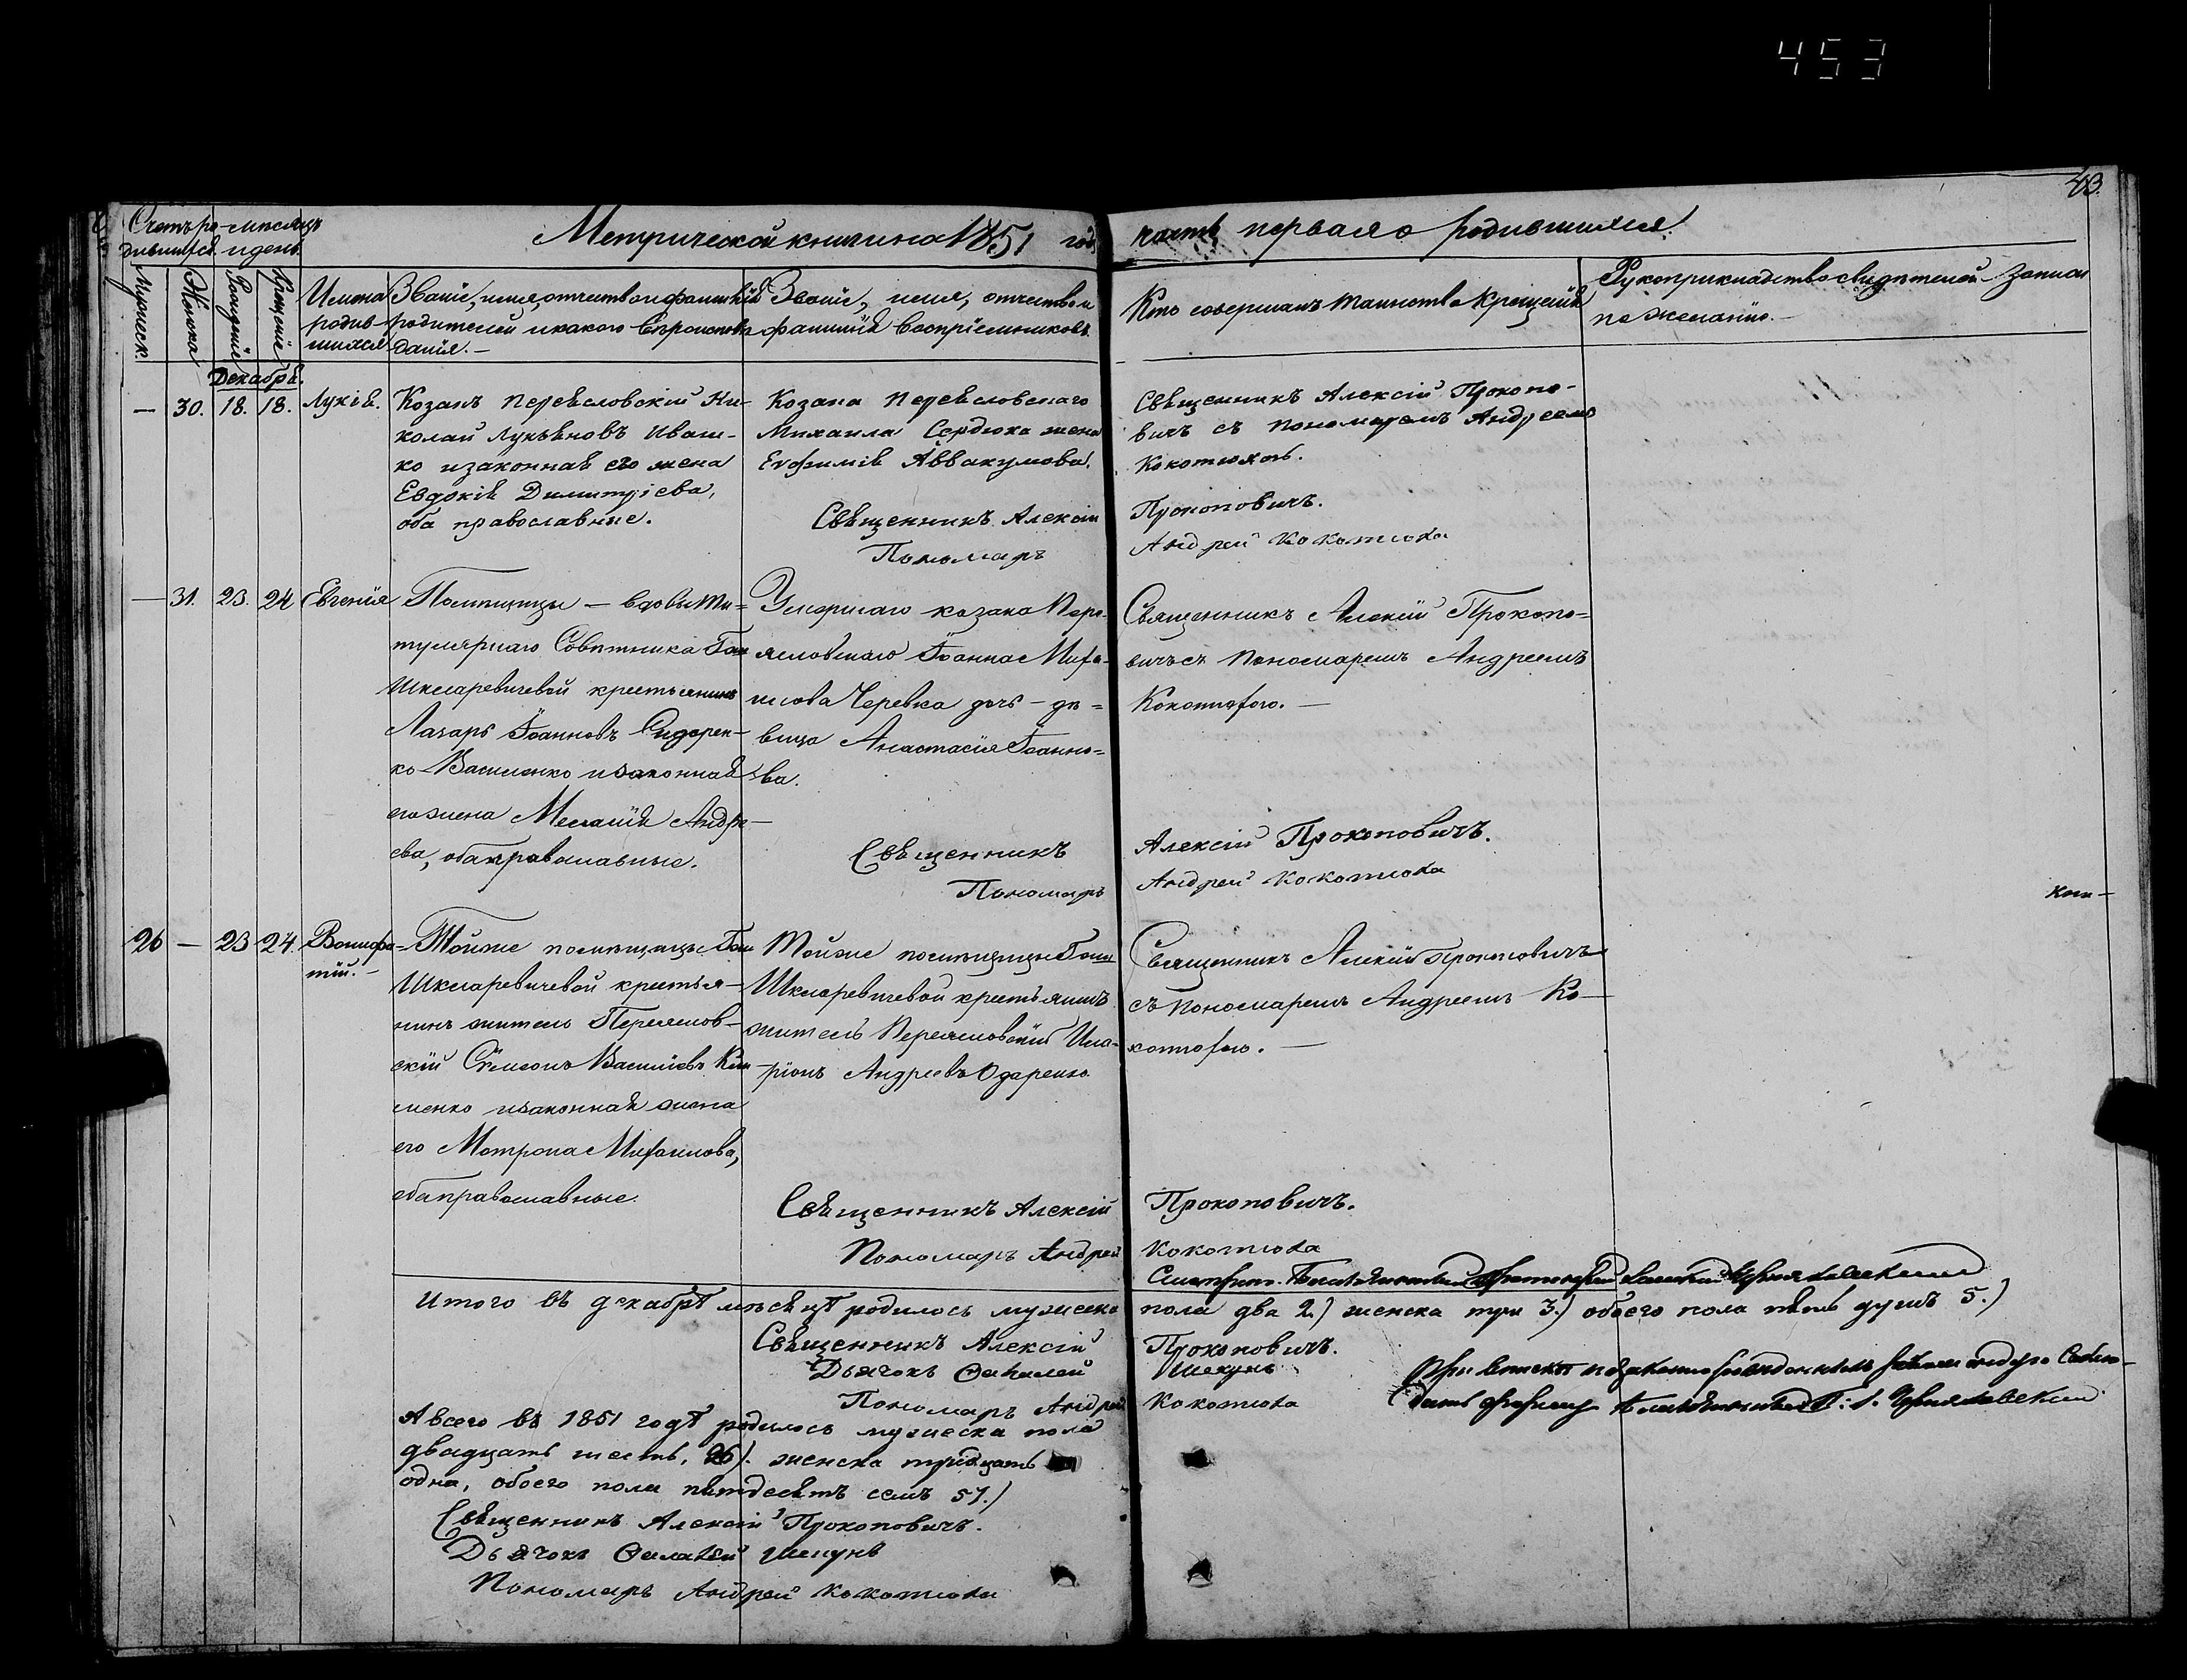 453
43.
Счетъ ро-
дившихся.
мѣсяцъ
и день.
Метрической книги на 1851 годъ
часть первая о родившихся.
Мужеск.
Женска
Рожденіе
Крещеніе
Имена
родив-
шихся
Званіе, имя, отчество и фамилія
родителей и какого вѣроиспове-
данія.—
Званіе, имя, отчество и
фамилія воспріемниковъ.
Кто совершалъ таинство крещенія
Рукоприкладство свидѣтелей записи
по желанію.—
Декабрь.
— 30. 18. 18. Лукія.
Козакъ Переясловскій Ни-
колай Лукьяновъ Иваш-
ко и законная его жена
Евдокія Димитріева,
оба православные.
Козака Переясловскаго
Михаила Сердюка жена
Евфимія Аввакумова.
Священникъ Алексій Прокопо-
вичъ съ пономаремъ Андреемъ
Кокотюхою.
Священникъ Алексій Прокоповичъ.
Пономарь Андрей Кокотюха
— 31. 23. 24 Евгенія
Помѣщицы — вдовы Ти-
тулярнаго Совѣтника
Шкларевичевой крестьянинъ
Лазарь Іоанновъ Сидорен-
ко Василенко и законная
его жена Меланія Андре-
ева, оба православные.
Умершаго козака Пере-
ясловскаго Іоанна Миха-
йлова Черевка дочь — дѣ-
вица Анастасія Іоанно-
ва.
Священникъ Алексій Прокопо-
вичъ съ Пономаремъ Андреемъ
Кокотюхою. —
Священникъ Алексій Прокоповичъ.
Пономарь Андрей Кокотюха
26 — 23 24. Вонифа-
тій.—
Тойже помѣщицы
Шкларевичевой крестья-
нинъ житель Переяслов-
скій Сѵмеонъ Василіевъ
менко и законная жена
его Матрона Михаилова,
оба православные.
Тойже помѣщицы
Шкларевичевой крестьянинъ
житель Переясловскій Ила-
ріонъ Андреевъ Одаренко
Священникъ Алексій Прокоповичъ
съ Пономаремъ Андреемъ Ко-
котюхою. —
Священникъ Алексій Прокоповичъ.
Пономарь Андрей Кокотюха
Итого въ декабрѣ мѣсяцѣ родилось мужеска пола два 2.) женска три 3.) обоего пола пять душъ 5.)
Священникъ Алексій Прокоповичъ.
Дьячокъ Шекунъ
Пономарь Андрей Кокотюха
А всего въ 1851 годѣ родилось мужеска пола
двадцать шесть, 26). женска тридцать
одна, обоего пола пятдесятъ семь 57.)
Священникъ Алексій Прокоповичъ.
Дьячокъ Шекунъ
Пономарь Андрей Кокотюха